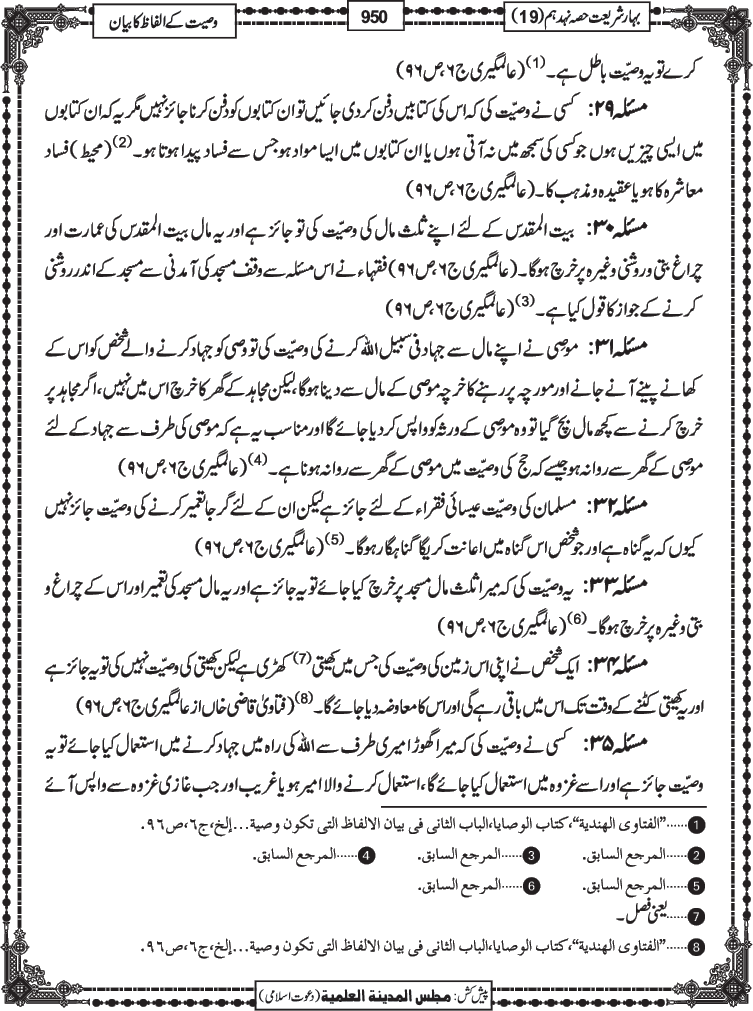 بہارِ شریعت حصہ نہدہم (19)
950
وصیت کے الفاظ کا بیان
کرے تو یہ وصیّت باطل ہے۔(1) (عالمگیری ج۶،ص۹۶)
مسئلہ ۲۹: کسی نے وصیّت کی کہ اس کی کتابیں دفن کر دی جائیں تو ان کتابوں کو دفن کرنا جائز نہیں مگر یہ کہ ان کتابوں
میں ایسی چیزیں ہوں جو کسی کی سمجھ میں نہ آتی ہوں یا ان کتابوں میں ایسا مواد ہو جس سے فساد پیدا ہوتا ہو۔(2) (محیط) فساد
معاشرہ کا ہو یا عقیدہ و مذہب کا۔ (عالمگیری ج۶،ص۹۶)
مسئلہ ۳۰: بیت المقدس کے لئے اپنے ثلث مال کی وصیّت کی تو جائز ہے اور یہ مال بیت المقدس کی عمارت اور
چراغ بتی و روشنی وغیرہ پر خرچ ہوگا۔ (عالمگیری ج۶،ص۹۶) فقہاء نے اس مسئلہ سے وقف مسجد کی آمدنی سے مسجد کے اندر روشنی
کرنے کے جواز کا قول کیا ہے۔(3) (عالمگیری ج۶،ص۹۶)
مسئلہ ۳۱: موصِی نے اپنے مال سے جہاد فی سبیل اللہ کرنے کی وصیّت کی تو وصی کو جہاد کرنے والے شخص کو اس کے
کھانے پینے آنے جانے اور مورچہ پر رہنے کا خرچہ موصی کے مال سے دینا ہوگا، لیکن مجاہد کے گھر کا خرچ اس میں نہیں، اگر مجاہد پر
خرچ کرنے سے کچھ مال بچ گیا تو وہ موصی کے ورثہ کو واپس کر دیا جائے گا اور مناسب یہ ہے کہ موصی کی طرف سے جہاد کے لئے
موصی کے گھر سے روانہ ہو جیسے کہ حج کی وصیّت میں موصی کے گھر سے روانہ ہونا ہے۔(4) (عالمگیری ج۶،ص۹۶)
مسئلہ ۳۲: مسلمان کی وصیّت عیسائی فقراء کے لئے جائز ہے لیکن ان کے لئے گرجا تعمیر کرنے کی وصیّت جائز نہیں
کیوں کہ یہ گناہ ہے اور جو شخص اس گناہ میں اعانت کریگا گناہگار ہوگا۔(5) (عالمگیری ج۶،ص۹۶)
مسئلہ ۳۳: یہ وصیّت کی کہ میرا ثلث مال مسجد پر خرچ کیا جائے تو یہ جائز ہے اور یہ مال مسجد کی تعمیر اور اس کے چراغ و
بتی وغیرہ پر خرچ ہوگا۔(6) (عالمگیری ج۶،ص۹۶)
مسئلہ ۳۴: ایک شخص نے اپنی اس زمین کی وصیّت کی جس میں کھیتی(7) کھڑی ہے لیکن کھیتی کی وصیّت نہیں کی تو یہ جائز ہے
اور یہ کھیتی کٹنے کے وقت تک اس میں باقی رہے گی اور اس کا معاوضہ دیا جائے گا۔(8) (فتاویٰ قاضی خاں از عالمگیری ج۶،ص۹۶)
مسئلہ ۳۵: کسی نے وصیّت کی کہ میرا گھوڑا میری طرف سے اللہ کی راہ میں جہاد کرنے میں استعمال کیا جائے تو یہ
وصیّت جائز ہے اور اسے غزوہ میں استعمال کیا جائے گا، استعمال کرنے والا امیر ہو یا غریب اور جب غازی غزوہ سے واپس آئے
1 ......"الفتاوی الهندية"، كتاب الوصايا، الباب الثانی فی بيان الالفاظ التی تكون وصية...إلخ، ج٦، ص٩٦.
2 ......المرجع السابق. 3 ......المرجع السابق. 4 ......المرجع السابق.
5 ......المرجع السابق. 6 ......المرجع السابق.
7 ......یعنی فصل۔
8 ......"الفتاوی الهندية"، كتاب الوصايا، الباب الثانی فی بيان الالفاظ التی تكون وصية...إلخ، ج٦، ص٩٦.
پیش کش: مجلس المدينة العلمية (دعوت اسلامی)